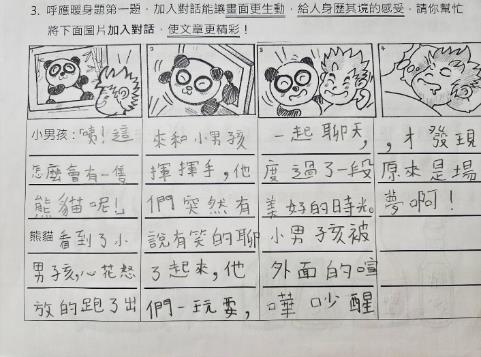 3. 呼應暖身題第一題，加入對話能讓畫面更生動，給人身歷其境的感受，請你幫忙
將下面圖片加入對話，使文章更精彩！
1
2
3
4
小男孩：「咦！這
怎麼會有一隻
熊貓呢！」
熊貓看到了小
男孩，心花怒
放的跑了出
來和小男孩
揮揮手，他
們突然有
說有笑的聊
了起來，他
們一玩耍，
一起聊天，
度過了一段
美好的時光。
小男孩被
外面的喧
嘩吵醒
，才發現
原來是場
夢啊！